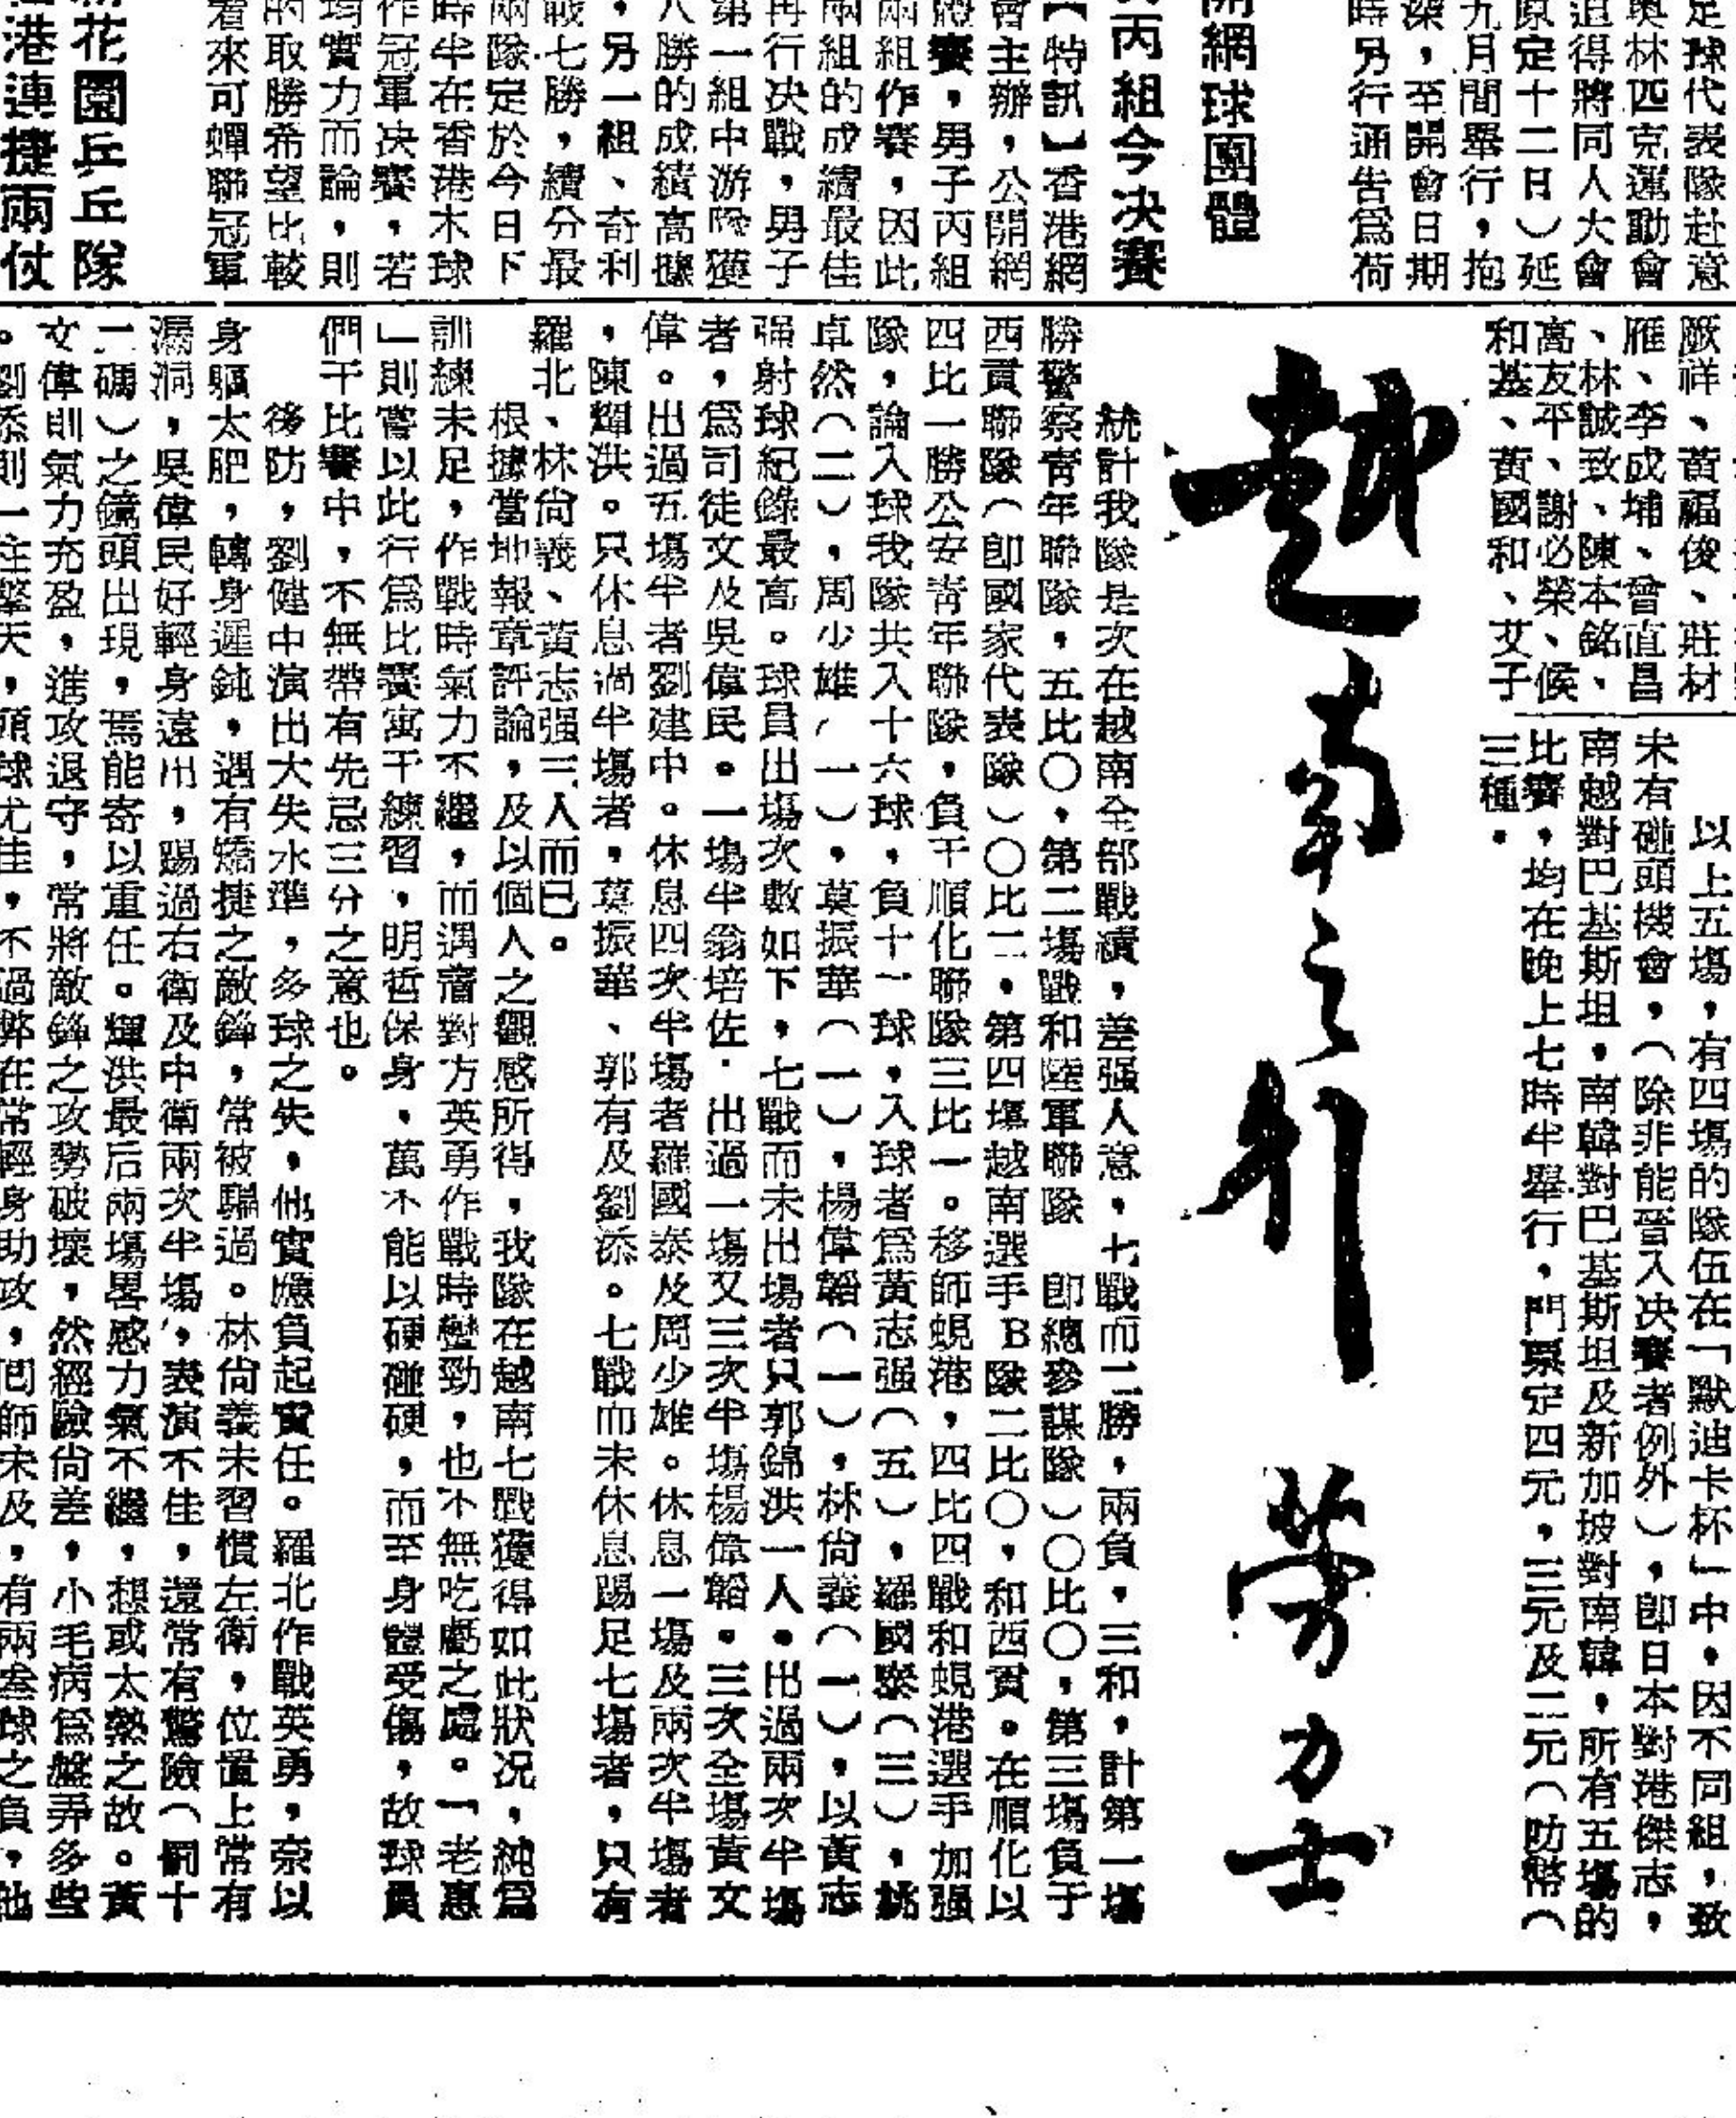 足球代表隊赴意
奧林匹克運動會
追得將同人大會
原定十二日）延
九月間舉行，抱
深，至開會日期
時另行通告爲荷
開網球團體
丙組今决賽
【特訊】香港網
會主辦，公開網
體賽，男子丙組
兩組作賽，因此
兩組的成績最佳
再行决戰，男子
第一組中游隊獲
八勝的成績高據
，另一組、奇利
戰七勝，續分最
兩隊定於今日下
時半在香港木球
作冠軍决賽，若
均實力而論，則
的取勝希望比較
看來可蟬聯冠軍
花園乒乓隊
港連捷兩仗
厥祥、黃福俊、莊材
雁、李成埔、曾直昌
、林誠致、陳本銘、
高友平、謝必榮、候
和基、黃國和、艾子
以上五場，有四場的隊伍在「默迪卡杯」中，因不同組，致
未有碰頭機會，（除非能晉入决賽者例外），即日本對港傑志，
南越對巴基斯坦，南韓對巴基斯坦及新加坡對南韓，所有五場的
比賽，均在晚上七時半舉行，門票定四元，三元及二元（叻幣（
三種。
越南之行 勞力士
統計我隊是次在越南全部戰績，差强人意，七戰而二勝，兩負，三和，計第一塲
勝警察青年聯隊，五比〇，第二塲戰和陸軍聯隊 即總參謀隊）〇比〇，第三塲負于
西貢聯隊（即國家代表隊）〇比二，第四塲越南選手B隊二比〇，和西貢。在順化以
四比一勝公安青年聯隊，負于順化聯隊三比一。移師蜆港，四比四戰和蜆港選手加强
隊，論入球我隊共入十六球，負十一球，入球者爲黃志强（五），羅國泰（三），姚
卓然（二），周少雄（一），莫振華（一），楊偉韜（一），林尙義（一），以黃志
强射球紀錄最高。球員出塲次數如下，七戰而未出塲者只郭錦洪一人。出過兩次半塲
者，爲司徒文及吳偉民。一塲半翁培佐．出過一塲又三次半塲楊偉韜。三次全塲黃文
偉。出過五塲半者劉建中。休息四次半塲者羅國泰及周少雄。休息一塲及兩次半塲者
，陳輝洪。只休息過半塲者，莫振華、郭有及劉添。七戰而未休息踢足七塲者，只有
羅北、林尙義、黃志强三人而已。
根據當地報章評論，及以個人之觀感所得，我隊在越南七戰獲得如此狀况，純爲
訓練未足，作戰時氣力不繼，而遇着對方英勇作戰時蠻勁，也不無吃虧之處。「老惠
」則嘗以此行爲比賽寓于練習，明哲保身，萬不能以硬碰硬，而至身體受傷，故球員
們于比賽中，不無帶有先忌三分之意也。
後防，劉健中演出大失水準，多球之失，他實應負起責任。羅北作戰英勇，奈以
身軀太肥，轉身遲鈍，遇有矯捷之敵鋒，常被騙過。林尙義未習慣左衛，位置上常有
漏洞，吳偉民好輕身遠出，踢過右衛及中衛兩次半塲，表演不佳，還常有驚險（個十
二碼）之鏡頭出現，焉能寄以重任。輝洪最后兩塲畧感力氣不繼，想或太熱之故。黃
文偉則氣力充盈，進攻退守，常將敵鋒之攻勢破壞，然經驗尙差，小毛病爲盤弄多些
。劉添則一柱擎天，頭球尤佳，不過弊在常輕身助攻，囘師未及，有兩叁球之負，他